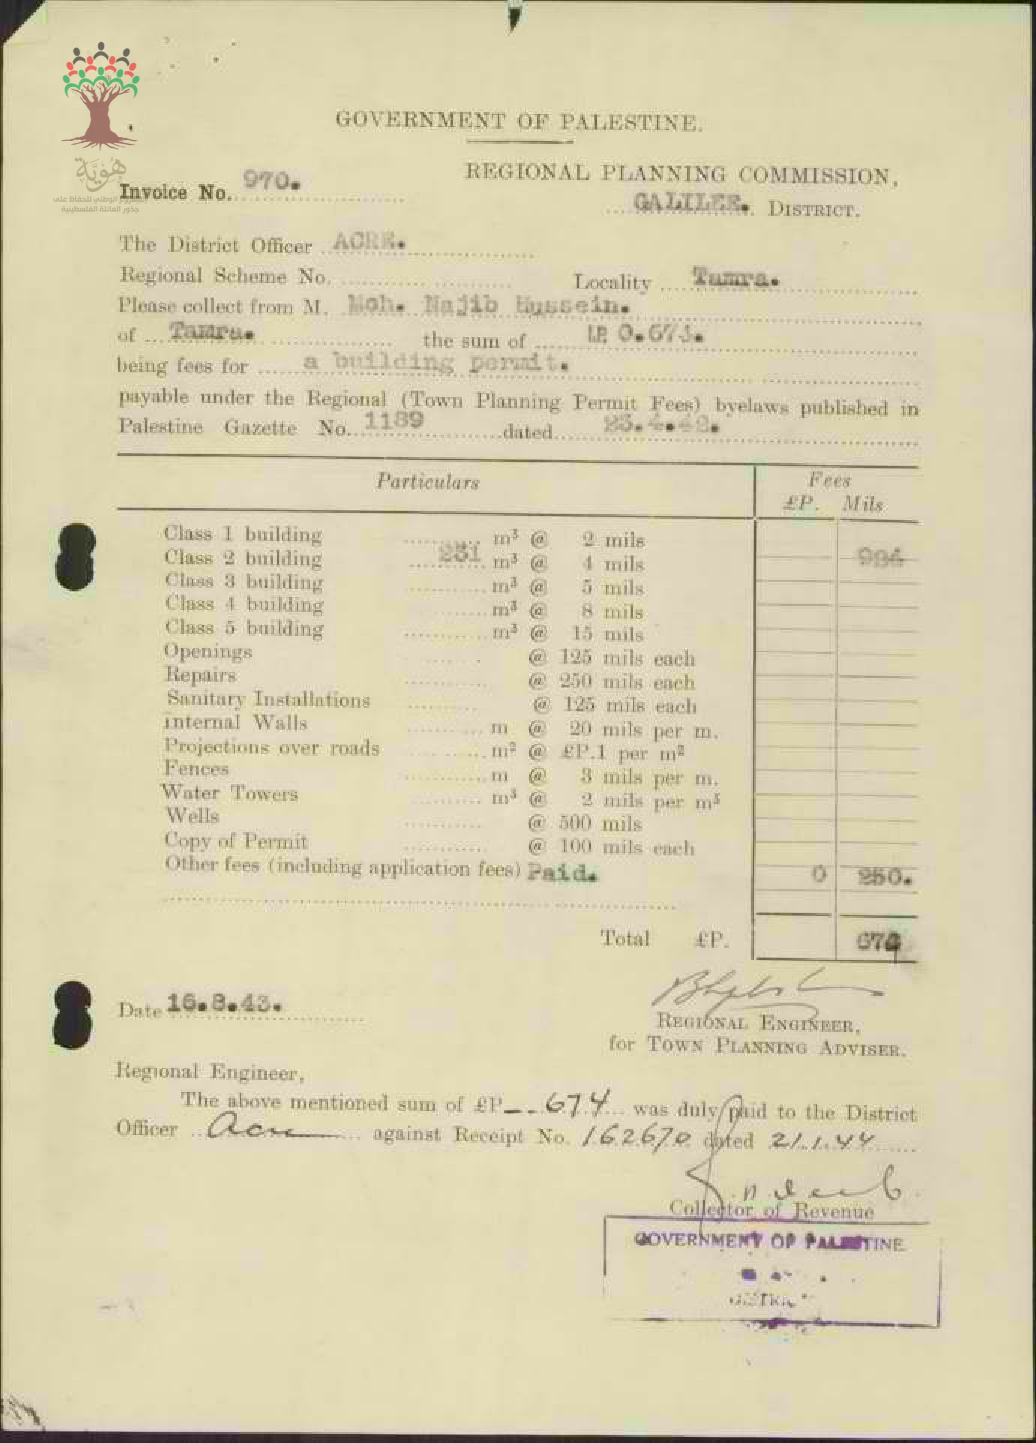 هُوِيَّة
GOVERNMENT OF PALESTINE.
Invoice No. 970.
REGIONAL PLANNING COMMISSION,
GALILEE. DISTRICT.
The District Officer ACRE.
Regional Scheme No. Locality Tamra.
Please collect from M. Moh. Najib Hussein.
of Tamra. the sum of LP 0.674.
being fees for a building permit.
payable under the Regional (Town Planning Permit Fees) byelaws published in
Palestine Gazette No. 1189 dated 23.4.42.
Particulars Fees
£P. Mils
Class 1 building m³ @ 2 mils
Class 2 building 231 m³ @ 4 mils
Class 3 building m³ @ 5 mils
Class 4 building m³ @ 8 mils
Class 5 building m³ @ 15 mils
Openings @ 125 mils each
Repairs @ 250 mils each
Sanitary Installations @ 125 mils each
Internal Walls m @ 20 mils per m.
Projections over roads m² @ £P.1 per m²
Fences m @ 3 mils per m.
Water Towers m³ @ 2 mils per m³
Wells @ 500 mils
Copy of Permit @ 100 mils each
Other fees (including application fees) Paid. 0 250.
Total £P. 674
Date 16.8.43.
REGIONAL ENGINEER,
for TOWN PLANNING ADVISER.
Regional Engineer,
The above mentioned sum of £P — 674 was duly paid to the District
Officer Acre against Receipt No. 162670 dated 21.1.44
Collector of Revenue
GOVERNMENT OF PALESTINE